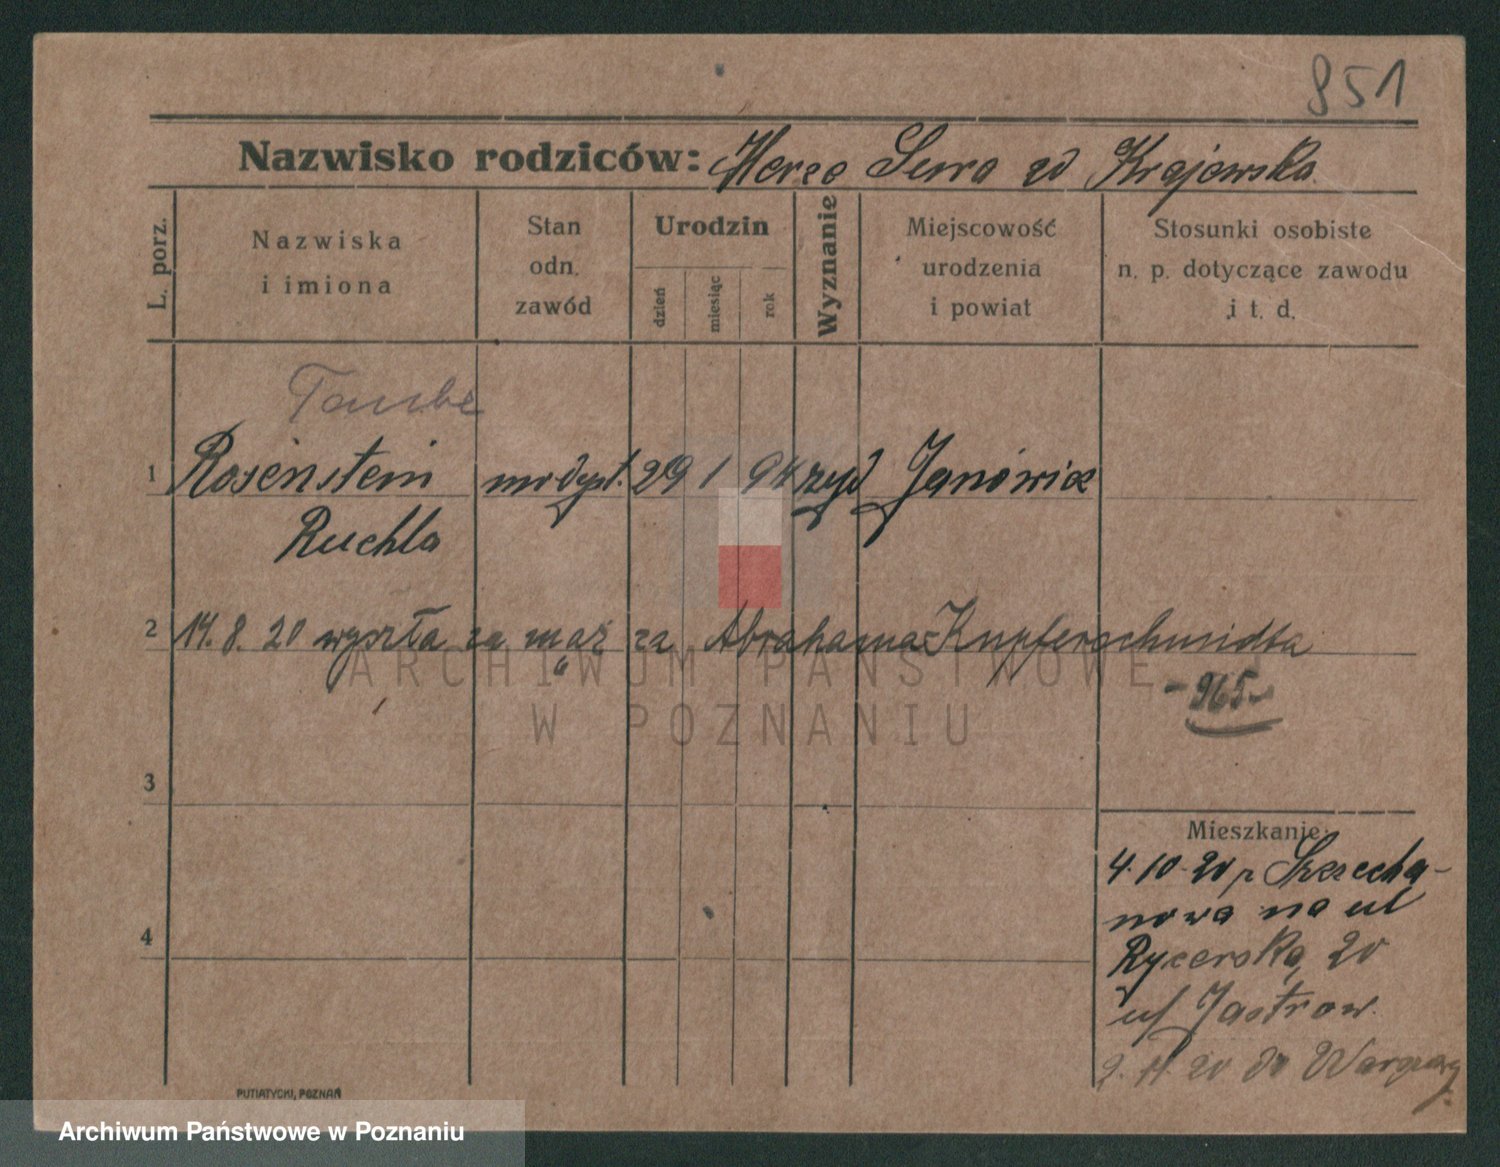 851
Nazwisko rodziców: Hersc Sura zd Krajewska
L. porz.
Nazwiska
i imiona
Stan
odn.
zawód
Urodzin
dzień
miesiąc
rok
Wyznanie
Miejscowość
urodzenia
i powiat
Stosunki osobiste
n. p. dotyczące zawodu
i t. d.
Taube
1 Rosenstein modyst. 29 1 94 żyd Janówiec
Ruchla
2 14. 8. 20 wyszła za mąż za Abrahama Kupferschmidta
- 965 -
ARCHIWUM PAŃSTWOWE
W POZNANIU
3
4
Mieszkanie:
4. 10. 20 z Strzecha-
nowa na ul
Rycerska 20
u/ Jastrow.
2. 11 20 do Warszawy
PUTIATYCKI, POZNAŃ
Archiwum Państwowe w Poznaniu